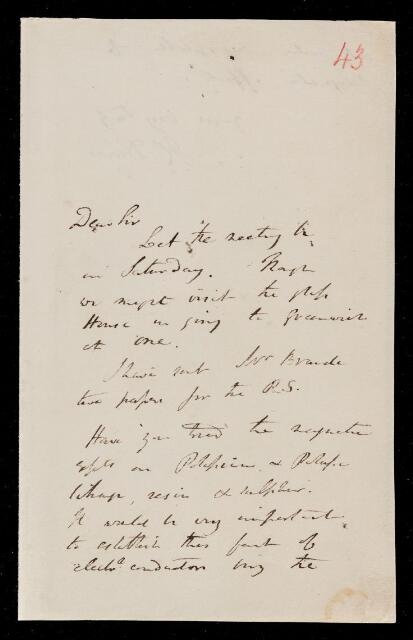 43
Dear Sir
Let the meeting be
on Saturday. Perhaps
we might visit the glass
House in going to Greenwich
at one.
I have sent Mr Brande
two papers for the R.S.
Have you tried the magnetic
effects on Potassium, &
litharge, resin & sulphur.
It would be very important
to establish this fact of
conductors being the